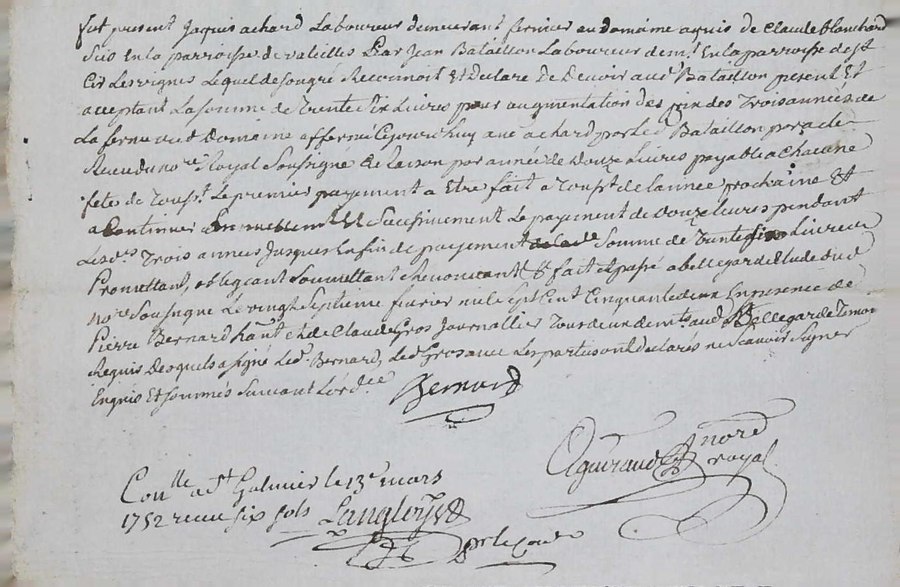 fut present Jaques achard Laboureur demeurant fermier au domaine aquis de Claude Blanchard
Sis En la parroisse de valeilles Et Jean Bataillon Laboureur demt En la parroisse de st
Cir Les vignes Lequel de son gré Reconnoit Et declare De Devoir aud Bataillon present Et
aceptant La somme de Trente six Livres pour augmentation des prix des Trois années de
La ferme dud Domaine affermé Cejourd'huy aud achard par Led Bataillon par acte
Receu du nore Royal Soussigné a Raison par année de Douze Livres payable a Chacune
fete de Touspt Le premier payement a Etre fait a Touspt de l'année prochaine Et
a Continuer Successivement Le payement de Douze Livres pendant
Lesdes Trois années Jusques En fin de payement Somme de Trente six Livres
Promettant, obligeant Soumettant Renoncant &c fait et passé a bellegarde Etude dud
nore Soussigné Le vingt Septieme fevrier mil Sept Cent Cinquante deux En presence de
Pierre Bernard hant et de Claude Gros Journallier Tous deux demts aud Bellegarde Temoin
Requis Desquels a signé Led Bernard, Led Gros avec Les parties ont declarés ne scavoir Signer
Enquis Et sommés Suivant L'ordce
Bernard
Aguiraud nore
royal
Conlle a st Galmier le 13e mars
1752 receu six sols Langloys